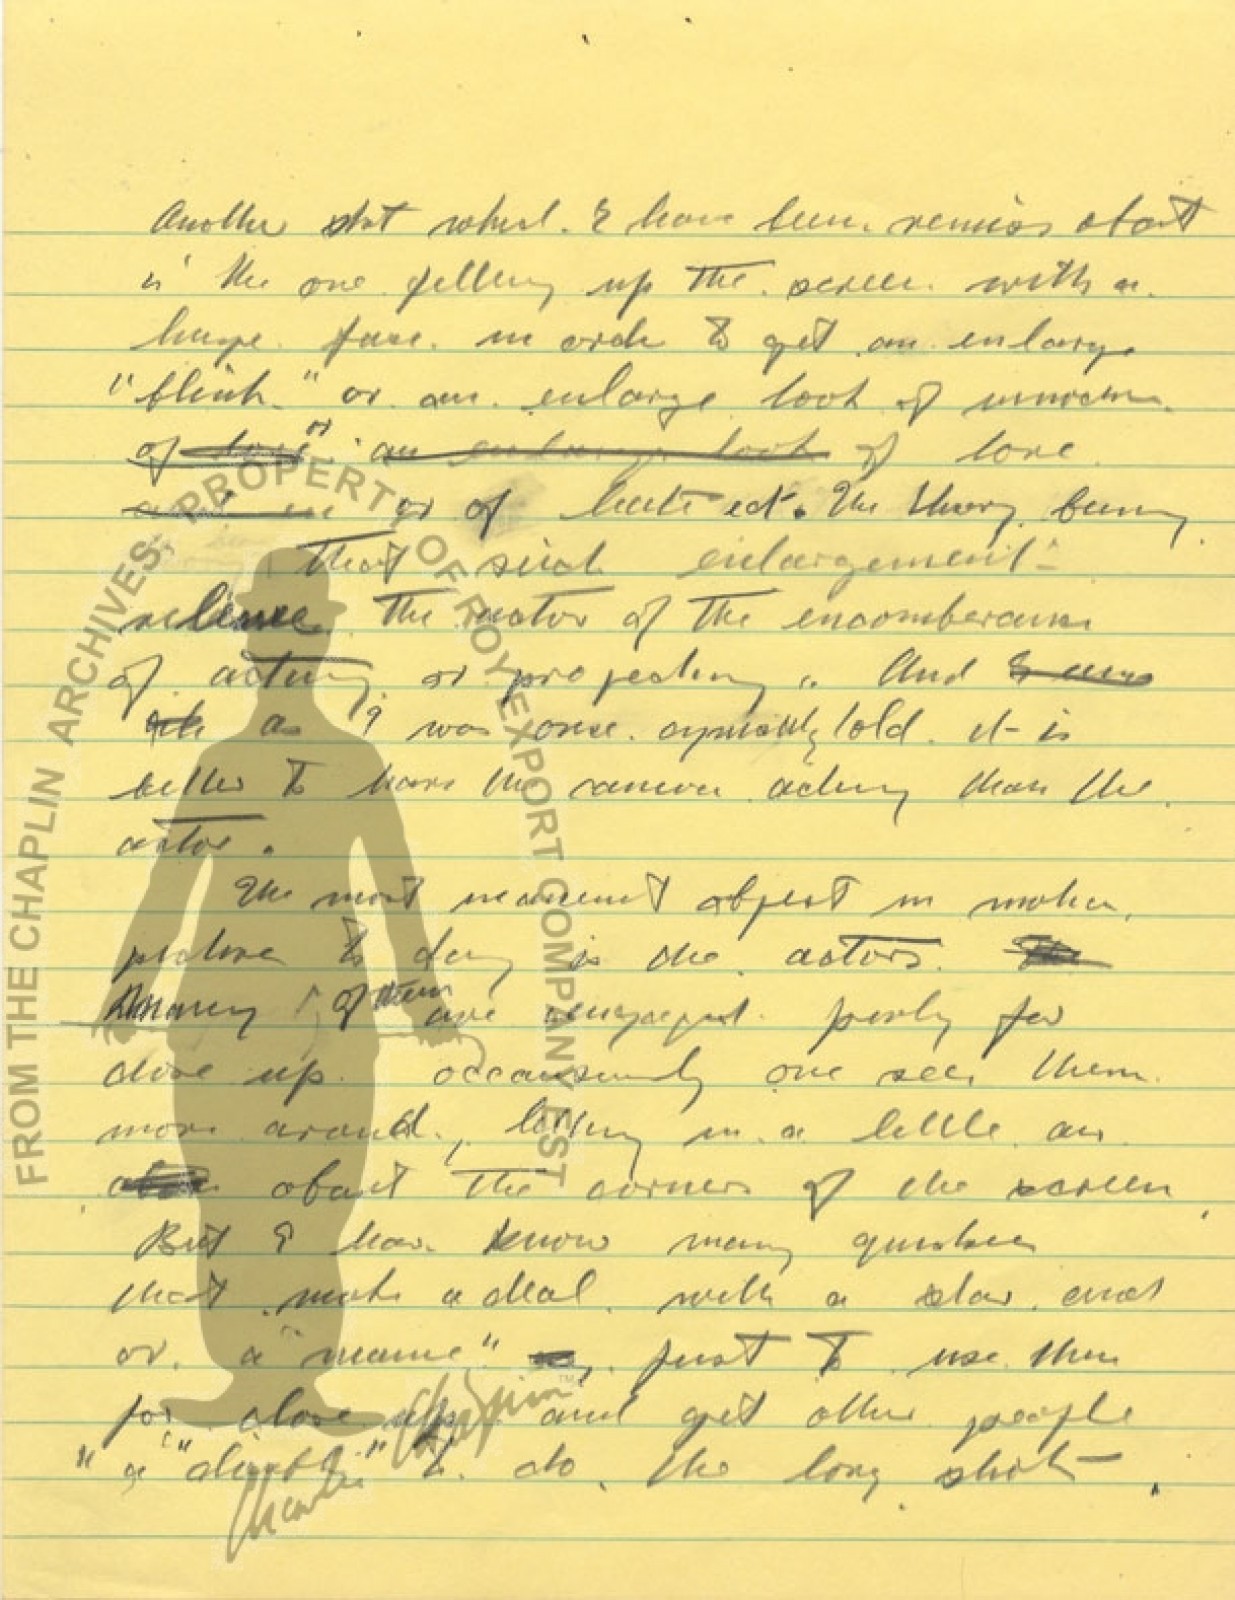 Another shot which I have been remiss about
is the one filling up the screen with a
huge face in orde to get an enlarge
"blink" or an enlarge look of
of love" or an enlarge look of love
or of hatred. The theory being
that such enlargement
relieve the actor of the encomberanse
of acting or projecting. And I was
as I was once told it is
better to have the camera acting than the
actor.
The most object in motion
picture to day is the actors. The
many of them are engaged purly for
close up. occasionaly one see them
more around, letting in a little air
about the corners of the screen
But I have know many
that make a deal with a star and
or a "name" just to use them
for close ups and get other people
"a "double" to do the long shot.
FROM THE CHAPLIN ARCHIVES. PROPERTY OF ROY EXPORT COMPANY EST
Charlie Chaplin™